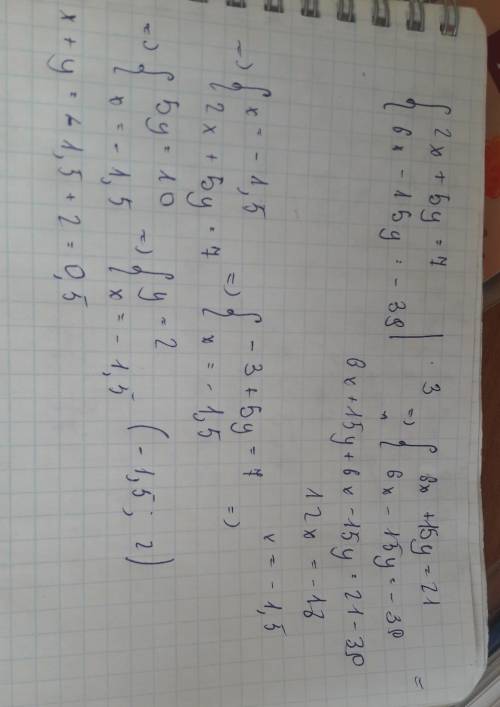 { 2x + 5y = 7 | · 3 => { 6x + 15y = 21 =
{ 6x - 15y = - 39 | { 6x - 15y = - 39
6x + 15y + 6x - 15y = 21 - 39
12x = -18
x = - 1,5
=> { x = - 1,5 => { - 3 + 5y = 7 =>
{ 2x + 5y = 7 { x = - 1,5
=> { 5y = 10 => { y = 2 (-1,5; 2)
{ x = - 1,5 { x = - 1,5
x + y = - 1,5 + 2 = 0,5